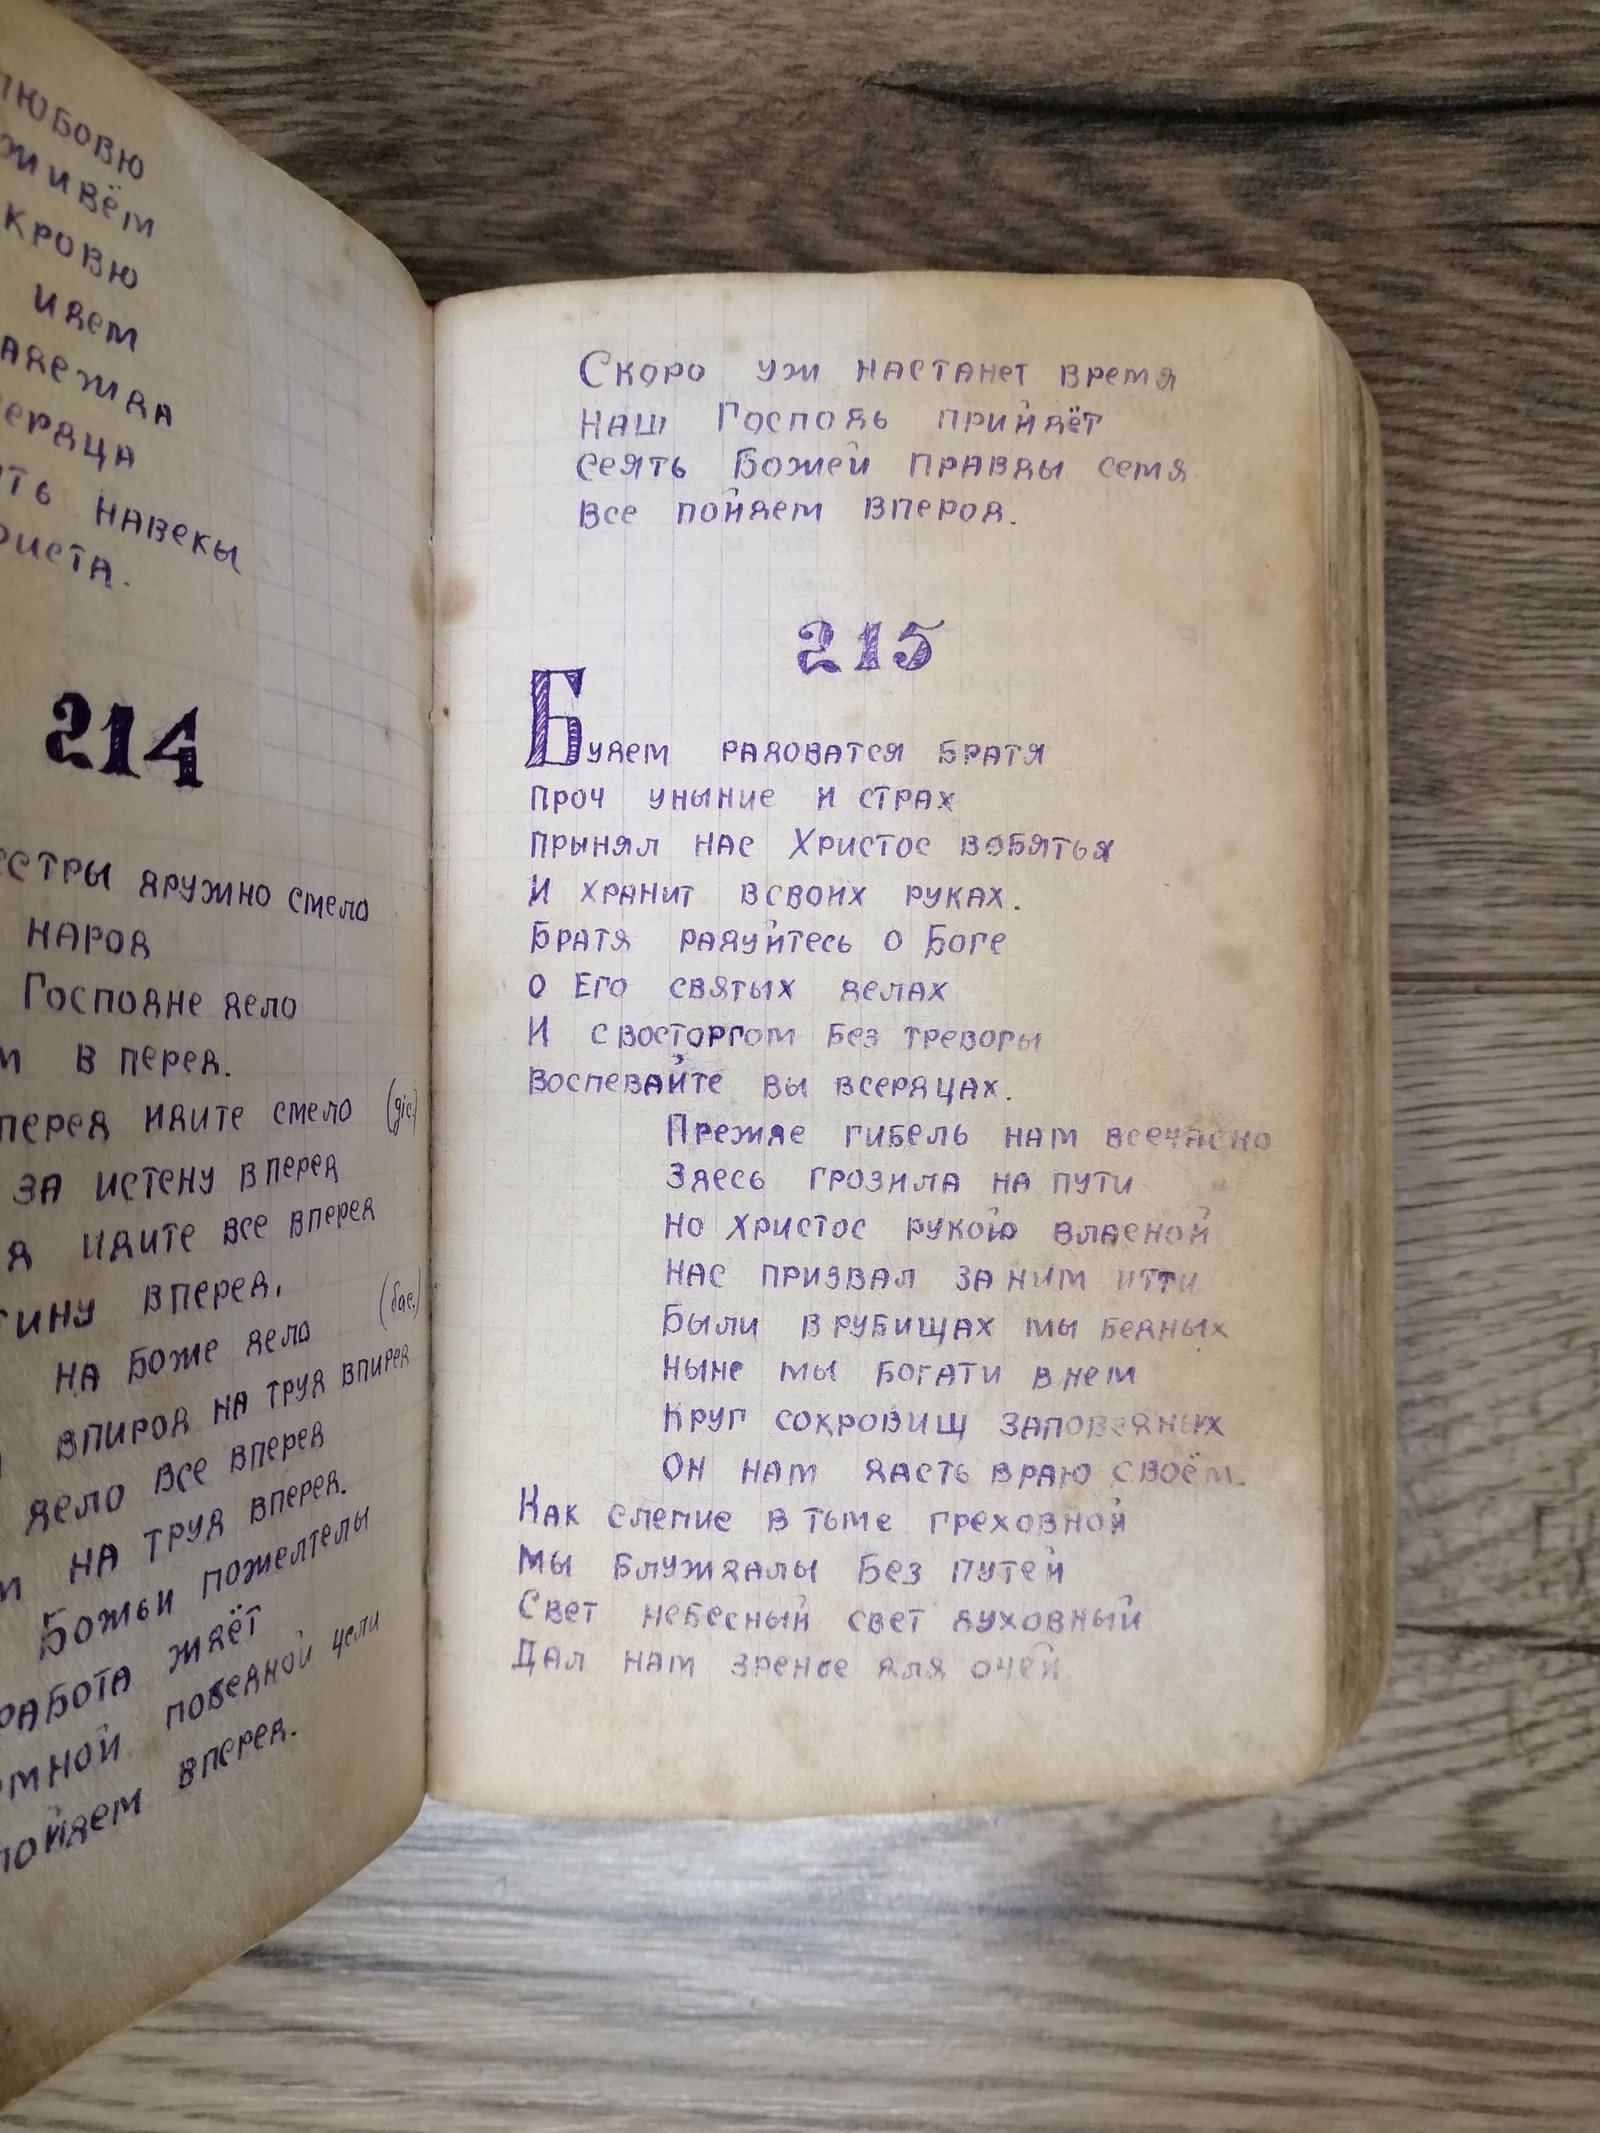 любовю
живём
кровю
идем
сердца
навекы
214
дружно смело
народ
Господне дело
в перед.
идите смело (діс.)
за истену вперед
идите все вперед
вперед.
на Боже дело (бас.)
впирод на труд впиред
дело все вперед
на труд вперед.
Божьи пожелтелы
работа ждёт
победной цели
пойдем вперед.
Скоро уж настанет время
наш Господь прийдёт
сеять Божей правды семя
все пойдем вперод.
215
Будем радоватся братя
проч уныние и страх
прынял нас Христос вобятья
и хранит всвоих руках.
Братя радуйтесь о Боге
о Его святых делах
И свосторгом без тревогы
воспевайте вы всердцах.
Прежде гибель нам всечасно
Здесь грозила на пути
но Христос рукою власной
нас призвал заним итти
Были врубищах мы бедных
ныне мы богати внем
круг сокровищ заповедных
он нам дасть враю своём.
Как слепие втьме греховной
мы блуждалы без путей
Свет небесный свет духовный
Дал нам зренье для очей